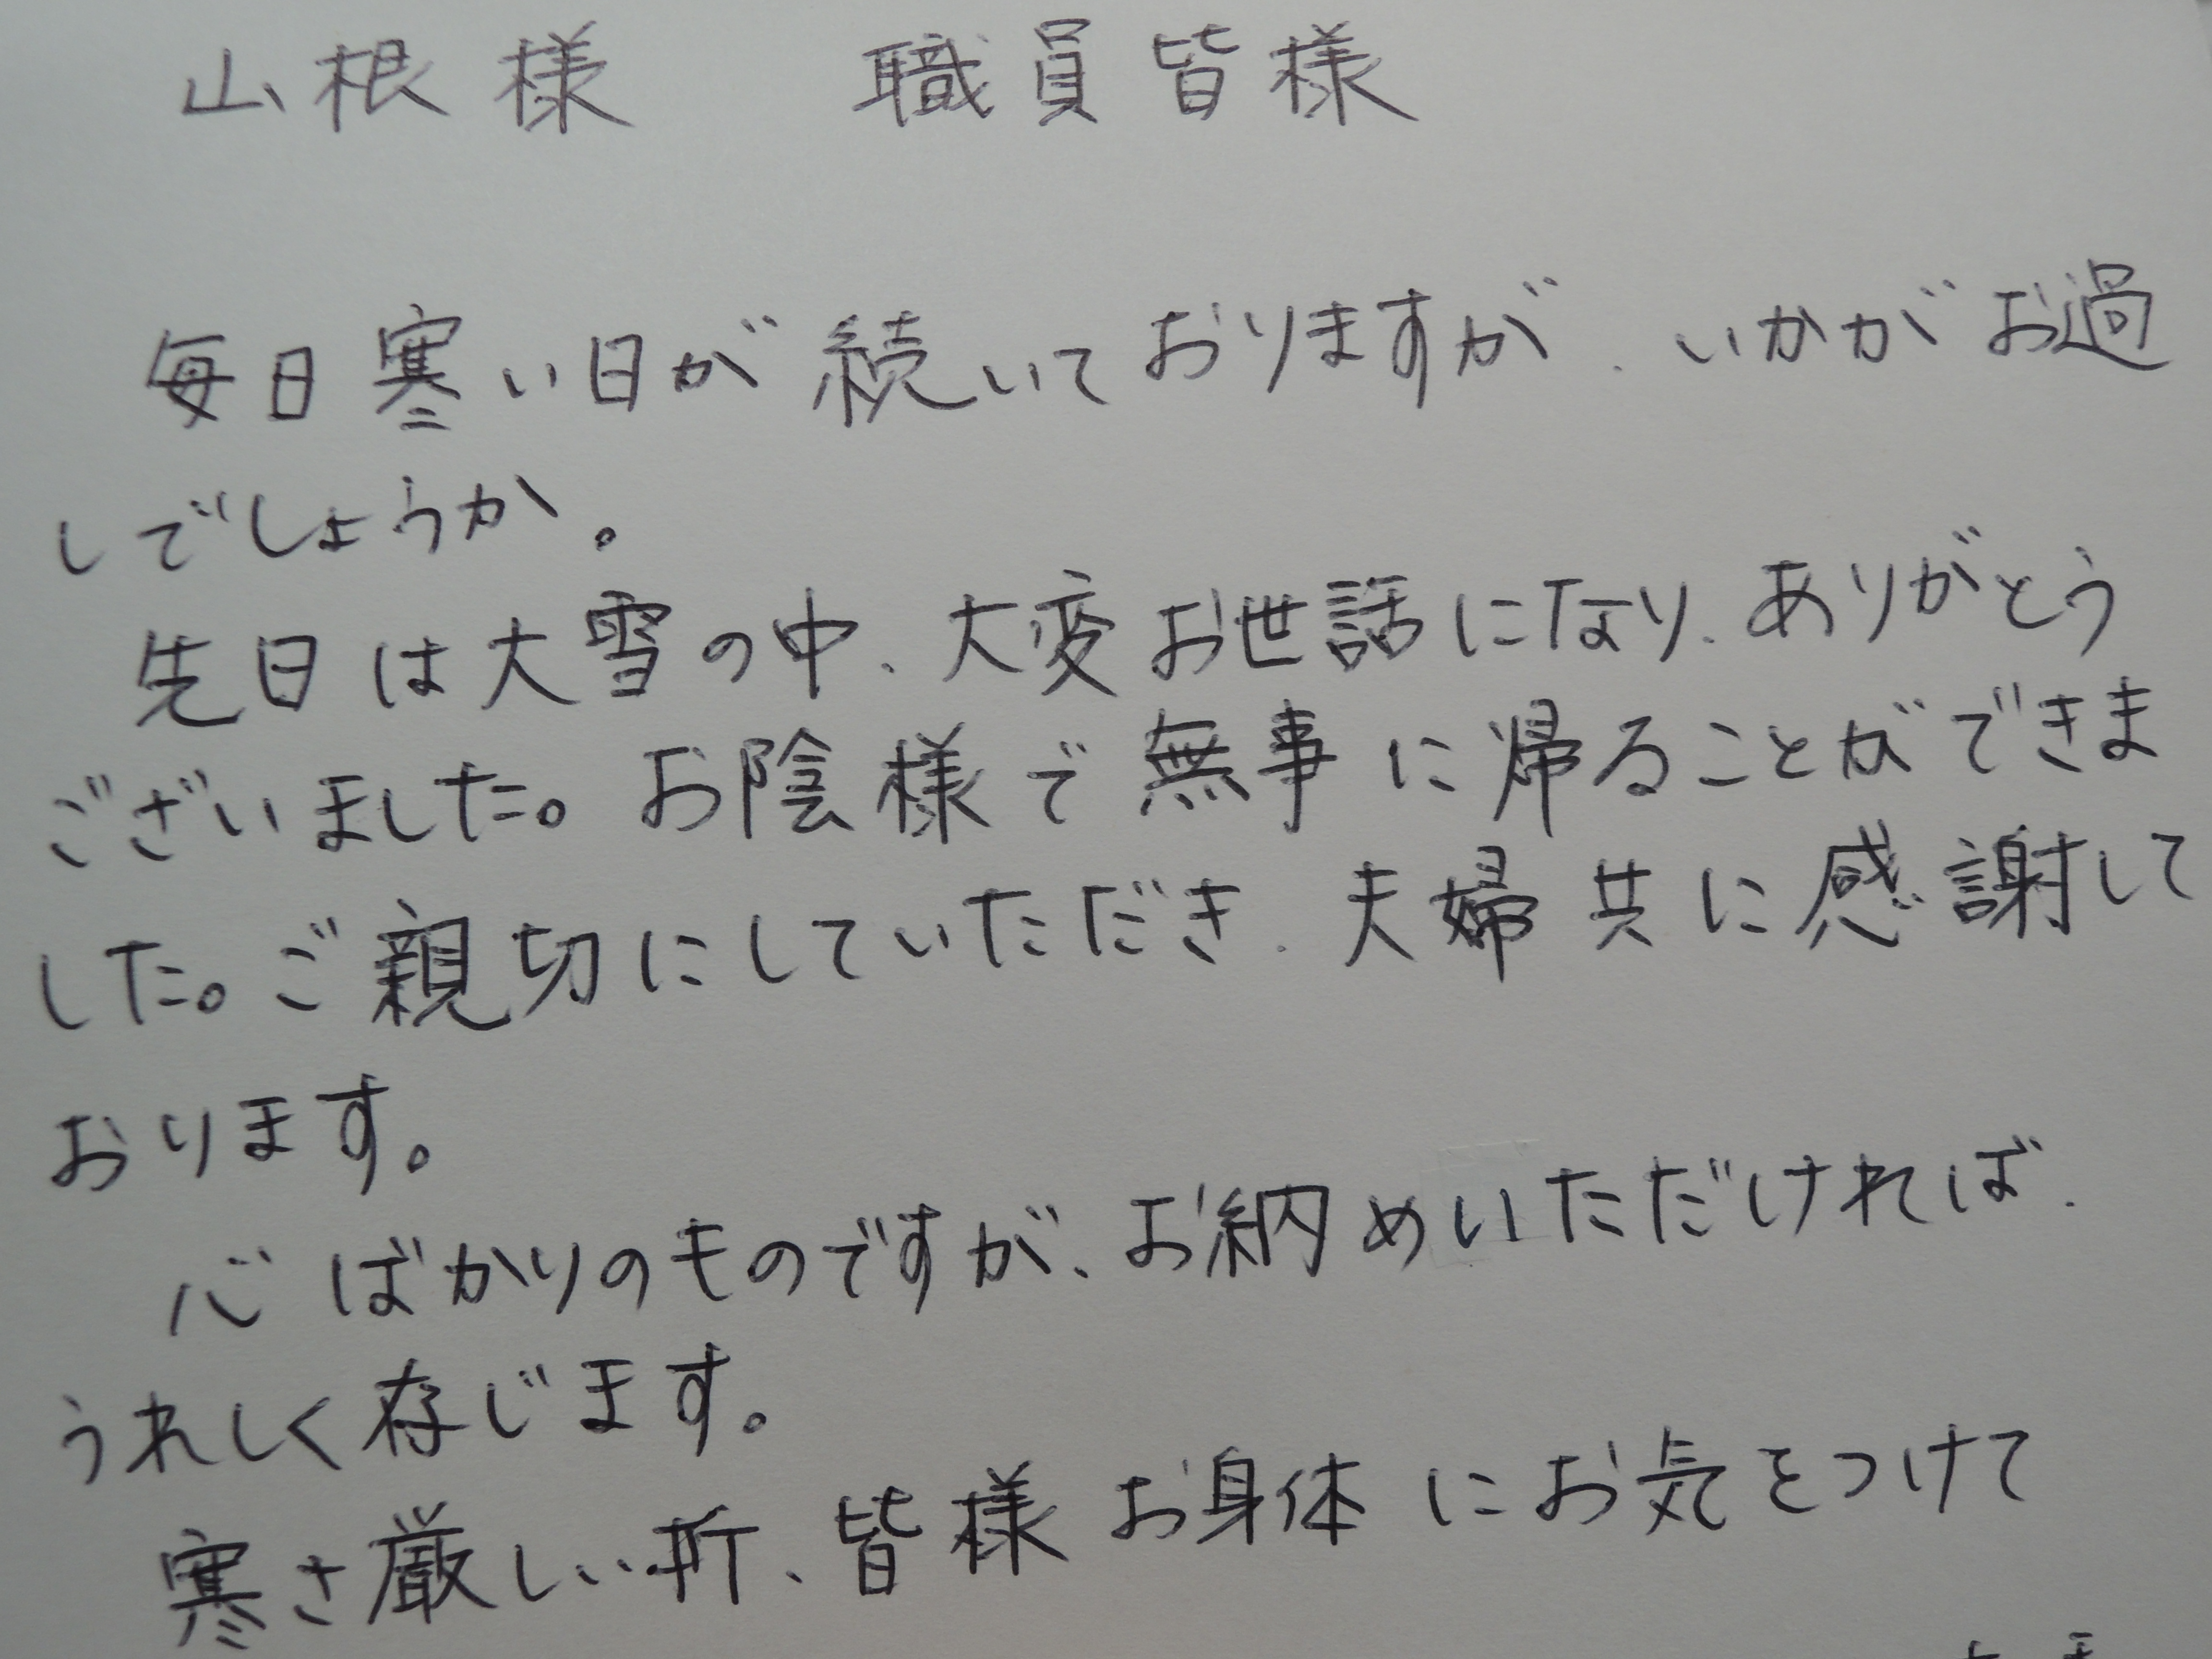 山根様　職員皆様
毎日寒い日が続いておりますが、いかがお過
しでしょうか。
先日は大雪の中、大変お世話になり、ありがとう
ございました。お陰様で無事に帰ることができま
した。ご親切にしていただき、夫婦共に感謝して
おります。
心ばかりのものですが、お納めいただければ、
うれしく存じます。
寒さ厳しい折、皆様お身体にお気をつけて